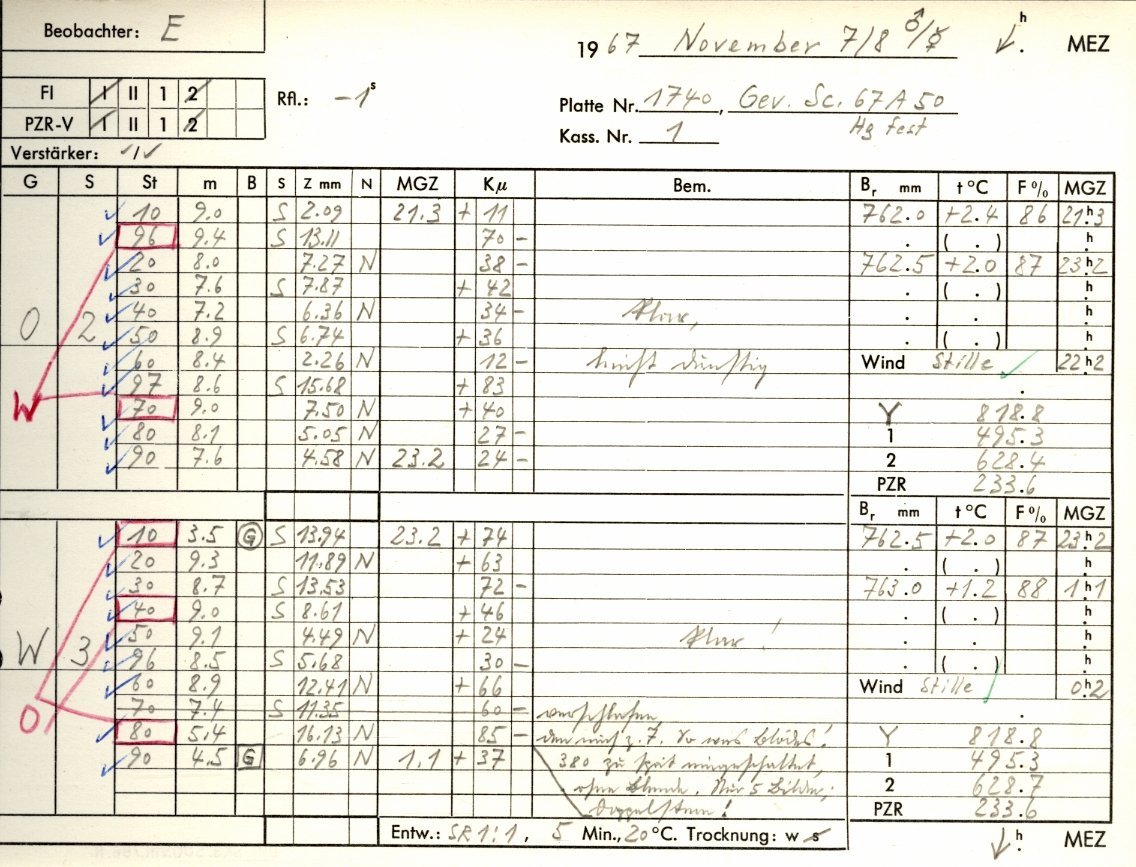 Beobachter: E
1967 November 7/8 ♂/☿ h. MEZ
FI I II 1 2
PZR-V I II 1 2
Rfl.: -1s
Platte Nr. 1740, Gev. Sc. 67A50
Hg fest
Kass. Nr. 1
Verstärker: ✓/✓
G S St m B S Z mm N MGZ Kµ Bem. Br mm t°C F% MGZ
10 9.0 S 2.09 21.3 + 11 762.0 +2.4 86 21h3
96 9.4 S 13.11 70 - . ( . ) h
20 8.0 7.27 N 38 - 762.5 +2.0 87 23h2
30 7.6 S 7.87 + 42 . ( . ) h
40 7.2 6.36 N 34 - klar, . . h
O 2 50 8.9 S 6.74 + 36 . ( . ) h
60 8.4 2.26 N 12 - leicht dunstig Wind Stille ✓ 22h2
97 8.6 S 15.68 + 83 .
W 70 9.0 7.50 N + 40 Y 818.8
80 8.1 5.05 N 27 - 1 495.3
90 7.6 4.58 N 23.2 24 - 2 628.4
PZR 233.6
Br mm t°C F% MGZ
10 3.5 G S 13.94 23.2 + 74 762.5 +2.0 87 23h2
20 9.3 11.89 N + 63 . ( . ) h
30 8.7 S 13.53 72 - 763.0 +1.2 88 1h1
40 9.0 S 8.61 + 46 . ( . ) h
50 9.1 4.49 N + 24 klar! . . h
W 3 96 8.5 S 5.68 30 - . ( . ) h
60 8.9 12.41 N + 66 Wind Stille ✓ 0h2
O 70 7.4 S 11.35 60 - verschlafen, .
80 5.4 16.13 N 85 - z. 7. So was Blödes! Y 818.8
90 4.5 G 6.96 N 1.1 + 37 380 zu spät eingeschaltet, 1 495.3
ohne Blende. Nur 5 Bilder; 2 628.7
Doppelstern! PZR 233.6
Entw.: SR 1:1, 5 Min., 20°C. Trocknung: w s h. MEZ